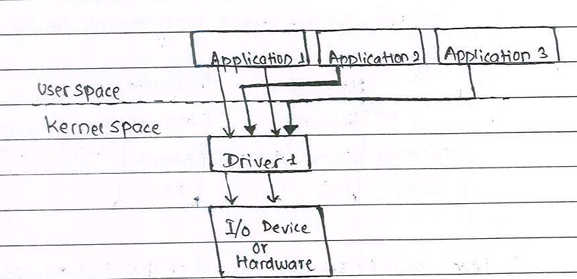 Application 1 Application 2 Application 3
User space
Kernel space
Driver 1
I/O Device
or
Hardware